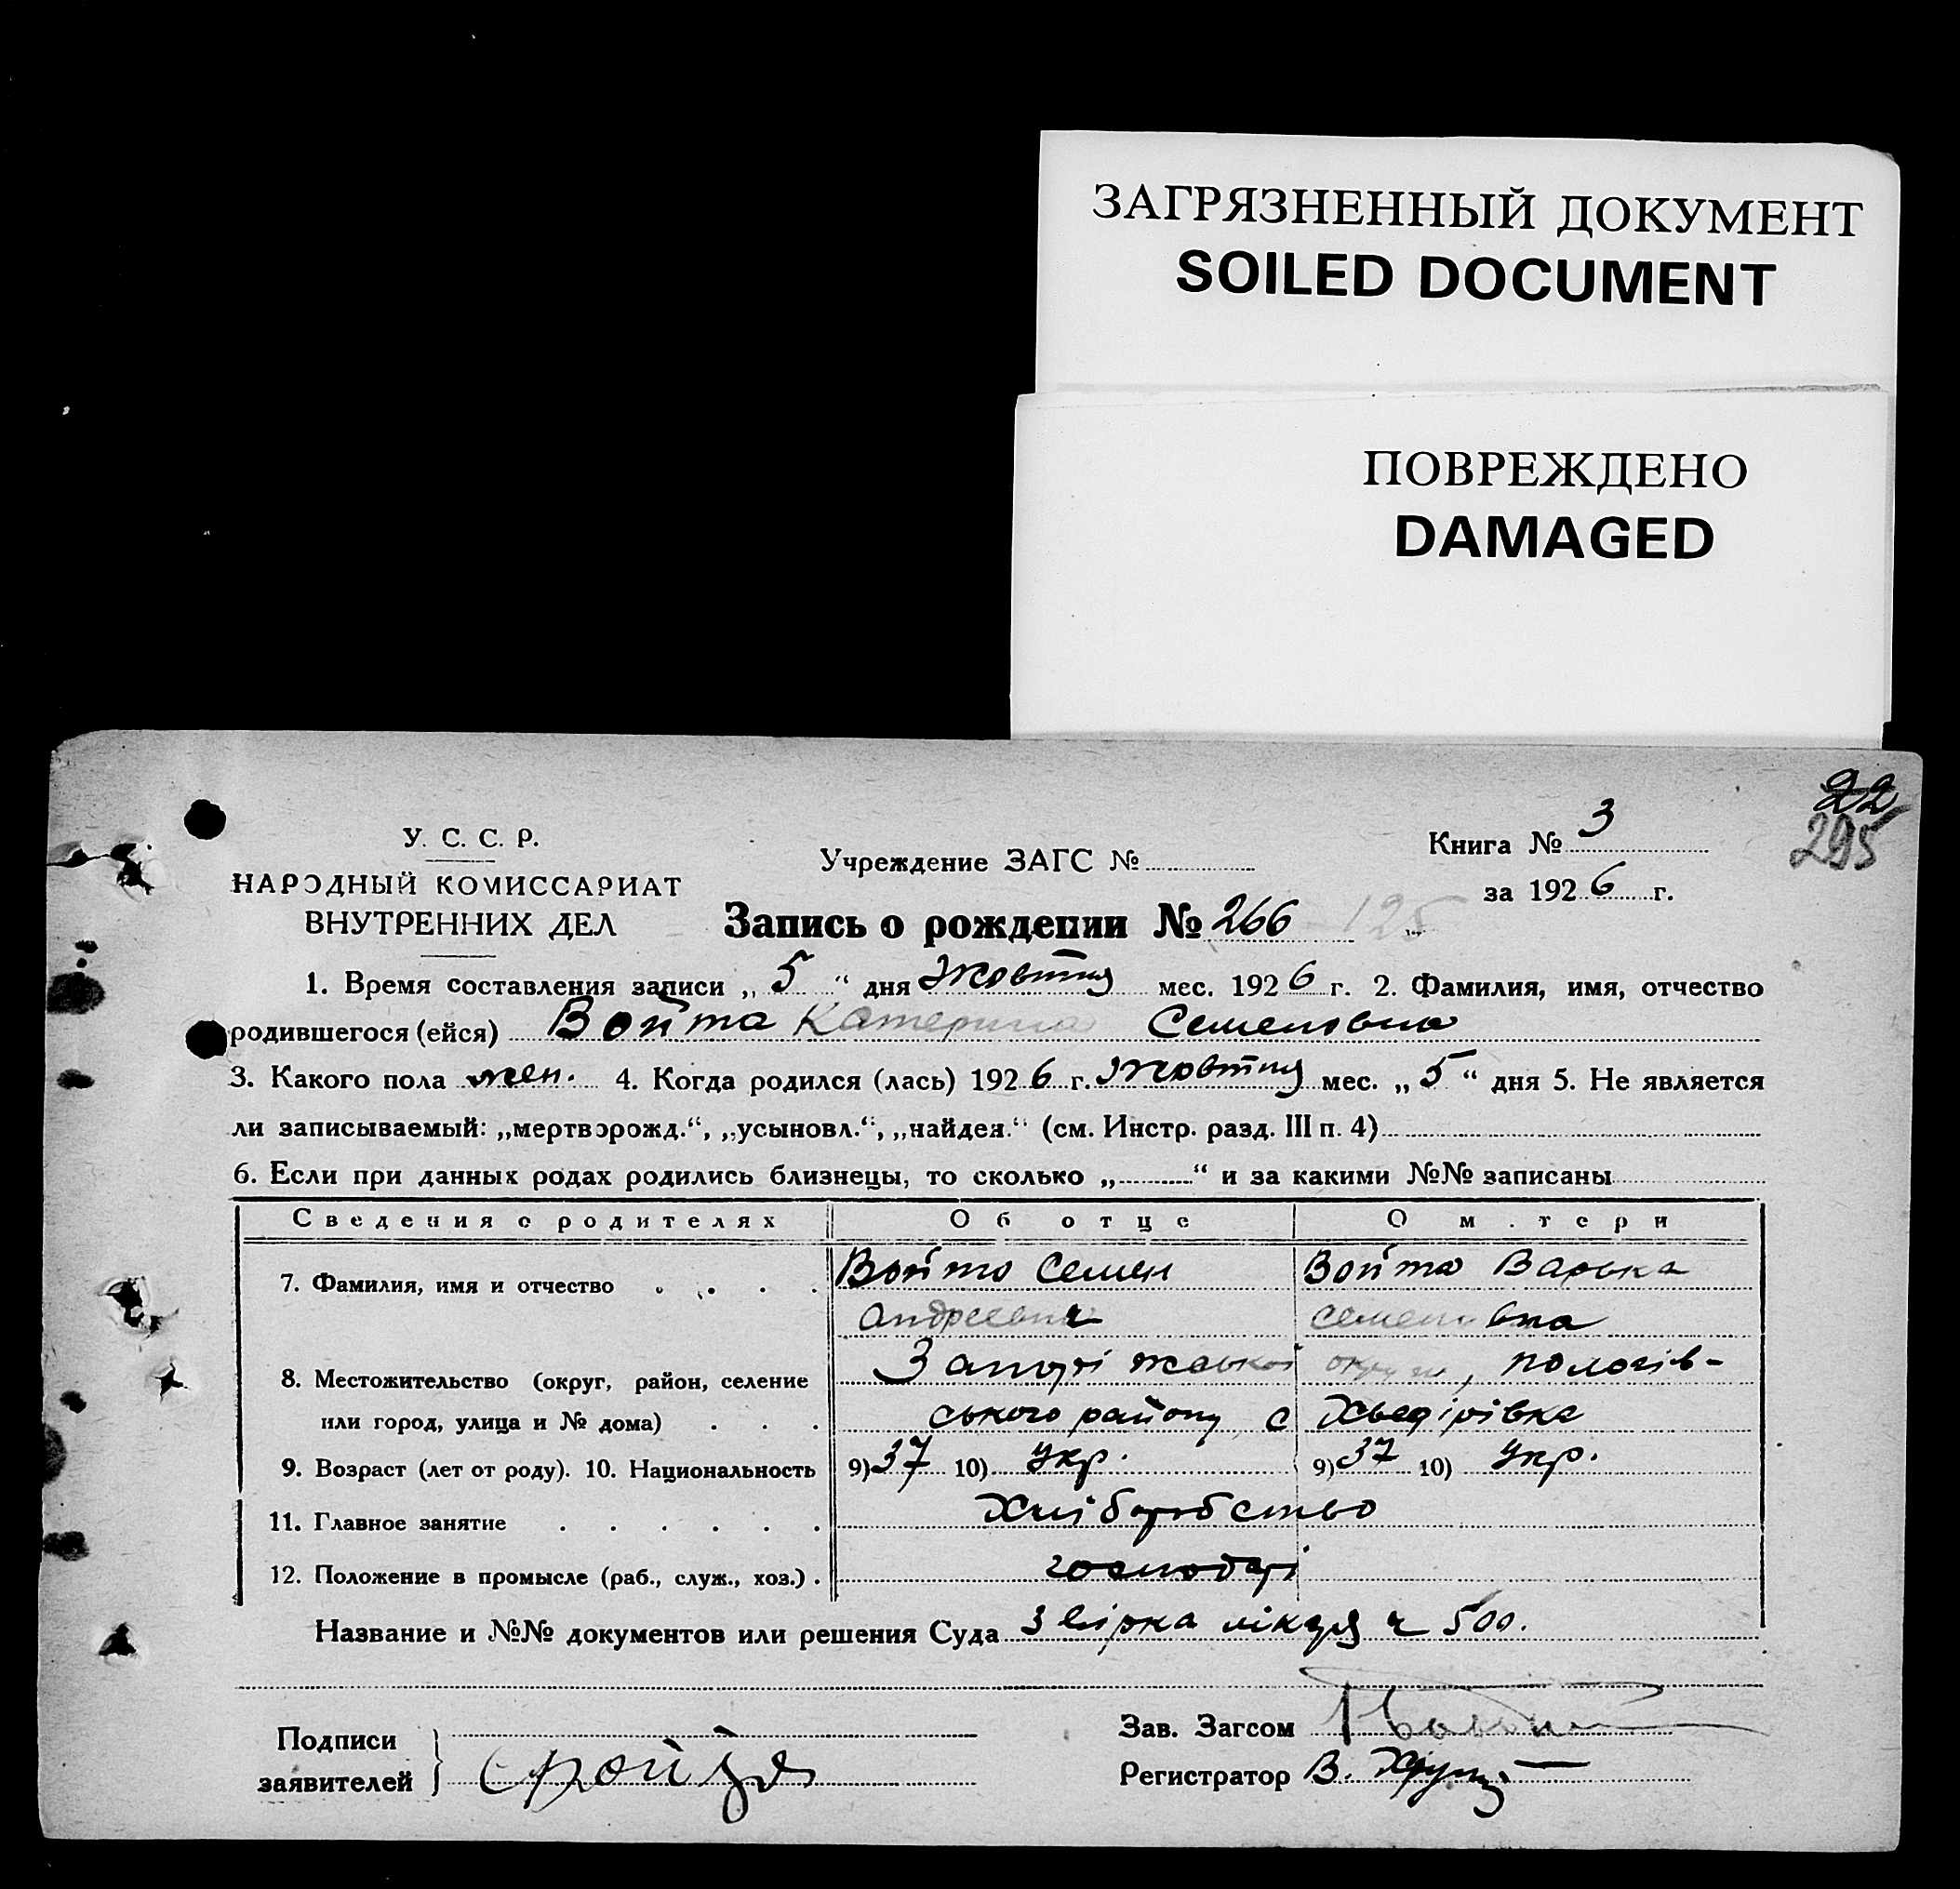 ЗАГРЯЗНЕННЫЙ ДОКУМЕНТ
SOILED DOCUMENT
ПОВРЕЖДЕНО
DAMAGED
22
295
У. С. С. Р.
НАРОДНЫЙ КОМИССАРИАТ
ВНУТРЕННИХ ДЕЛ
Учреждение ЗАГС №
Книга № 3
за 1926 г.
Запись о рождении № 266 125
1. Время составления записи „5“ дня Жовтня мес. 1926 г. 2. Фамилия, имя, отчество
родившегося (ейся) Войта Катерина Семеновна
3. Какого пола жен. 4. Когда родился (лась) 1926 г. Жовтня мес. „5“ дня 5. Не является
ли записываемый: „мертворожд.“, „усыновл.“, „найден.“ (см. Инстр. разд. III п. 4)
6. Если при данных родах родились близнецы, то сколько „ “ и за какими №№ записаны
Сведения о родителях Об отце О м.тери
7. Фамилия, имя и отчество Войта Семен Войта Варька
Андреевич Семенивна
8. Местожительство (округ, район, селение Запорі жської округи, пологів-
или город, улица и № дома) ського району с Хведірівка
9. Возраст (лет от роду). 10. Национальность 9) 37 10) Укр. 9) 37 10) Укр.
11. Главное занятие Хліборобство
12. Положение в промысле (раб., служ., хоз.) господарі
Название и №№ документов или решения Суда Звірка лікаря ч 500.
Подписи
заявителей
Зав. Загсом
Регистратор В.